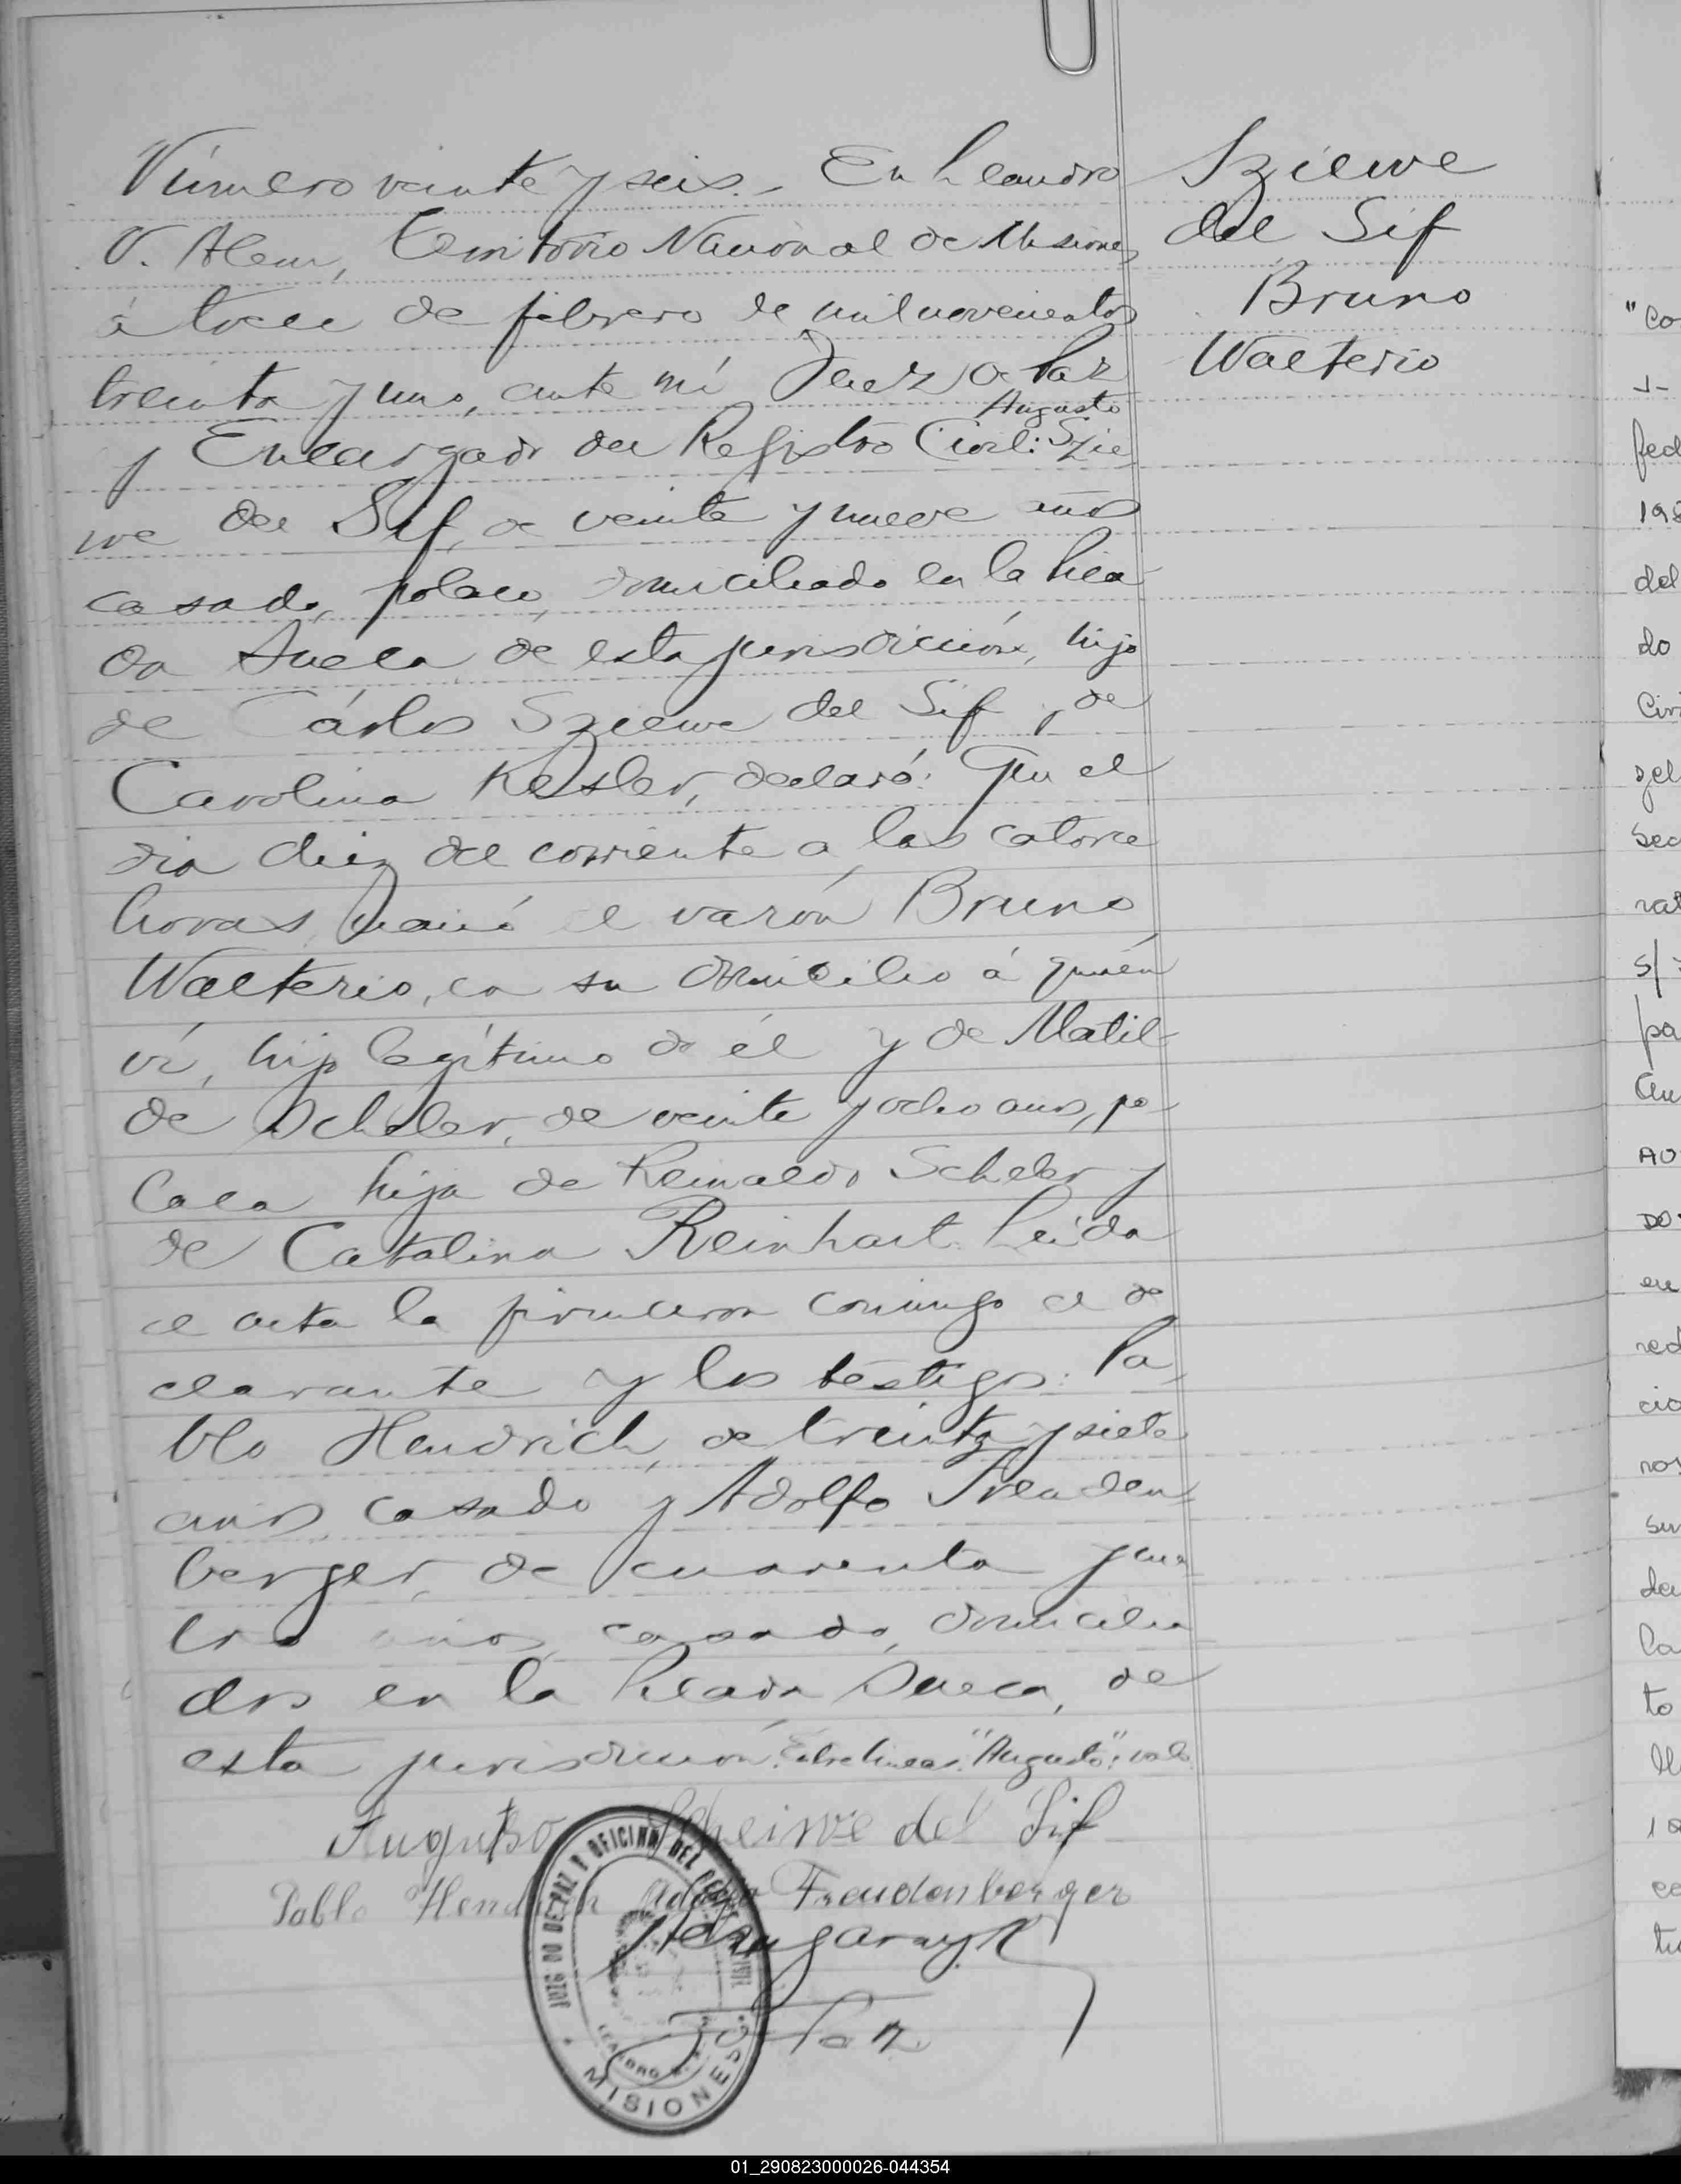 Número veinte y seis.- En Leandro
N. Alem, Territorio Nacional de Misiones,
á trece de febrero de mil novecientos
treinta y uno, ante mí Juez de Paz
Augusto
y Encargado del Registro Civil: Szie
we del Sif, de veinte y nueve años
casado, polaco, domiciliado en la Pica
da Sueca de esta jurisdicción, hijo
de Cárlos Sziewe del Sif y de
Carolina Kesler, declaró: Que el
dia diez del corriente a las catorce
horas, nació el varón Bruno
Walterio, en su domicilio á quién
ví, hijo legítimo de él y de Matil-
de Scheler, de veinte y ocho años, po-
laca hija de Reinaldo Scheler y
de Catalina Reinhart. Leída
el acta la firmaron conmigo el de
clarante y los testigos: Pa
blo Hendrich, de treinta y siete
años, casado y Adolfo Freuden
berger, de cuarenta y cua
tro años, casado, domicilia
dos en la Picada Sueca, de
esta jurisdicción. Entrelíneas: "Augusto": vale.
Augusto Scheiwe del Sif
Pablo Hendrich Adolfo Freudenberger
JUZGADO DE PAZ Y OFICINA DEL REGISTRO CIVIL
MISIONES
Sziewe
del Sif
Bruno
Walterio
"Co
fed
198
del
do
Civi
zel
Sec
rat
s/
pa
Au
AO
DO
en
red
cio
nos
su
de
la
to
01_290823000026-044354